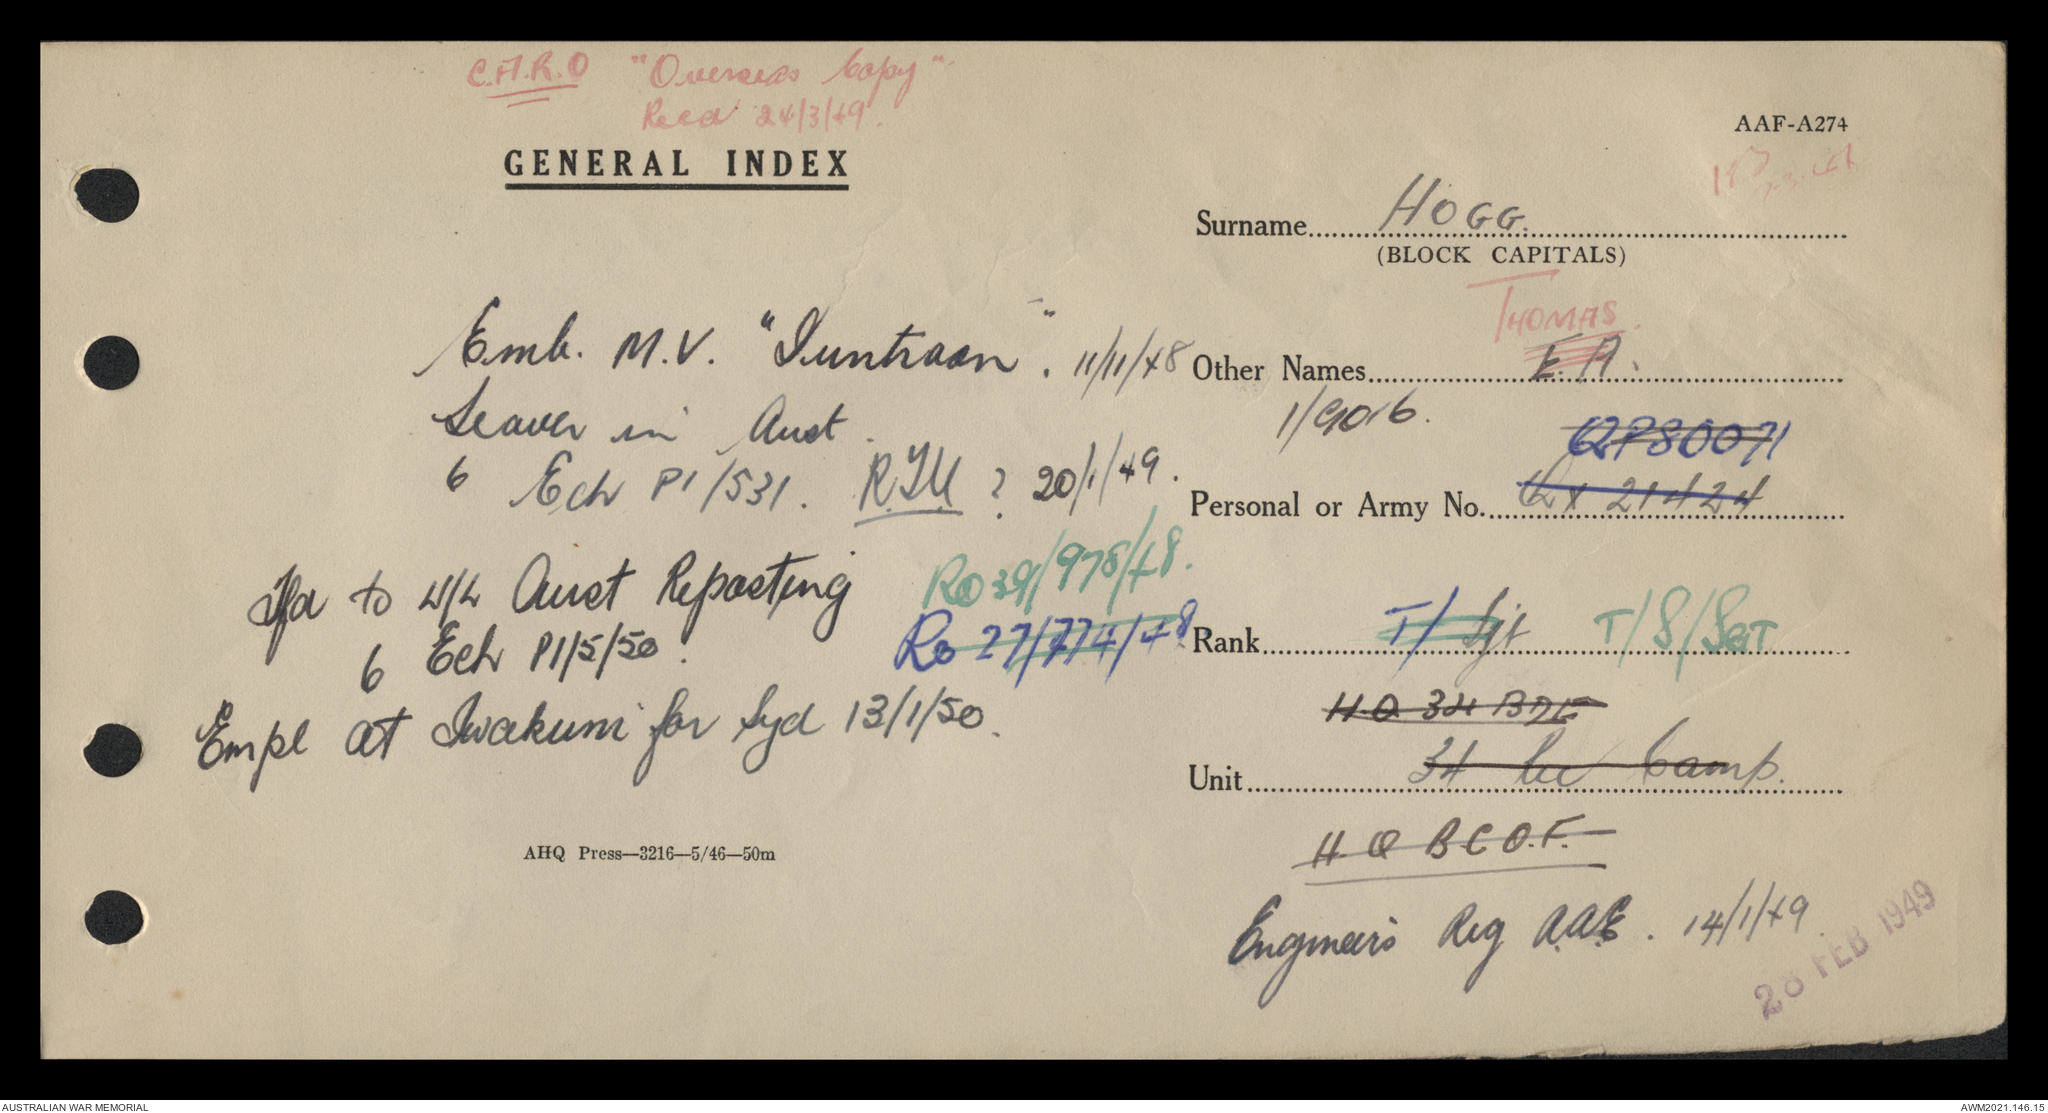 C.A.R.O "Overseas Copy"
Recd 24/3/49.
GENERAL INDEX
AAF-A274
Surname HOGG.
(BLOCK CAPITALS)
THOMAS.
Other Names E. A.
Emb. M.V. "Duntroon". 11/11/48
Leave in Aust.
6 Ech P1/531. R.T.U ? 20/1/49.
QP80071
Personal or Army No. QX 21424
Tfd to W/L Aust Reposting
6 Ech P1/5/50.
RO 39/978/48.
RO 27/774/48
Rank T/ Sjt T/S/SGT
Empl at Iwakuni for Syd 13/1/50.
H.Q 34 BDE
Unit 34 Camp.
H.Q B C O.F.
Engineers Reg A.A.E. 14/1/49.
28 FEB 1949
AHQ Press—3216—5/46—50m
AUSTRALIAN WAR MEMORIAL
AWM2021.146.15